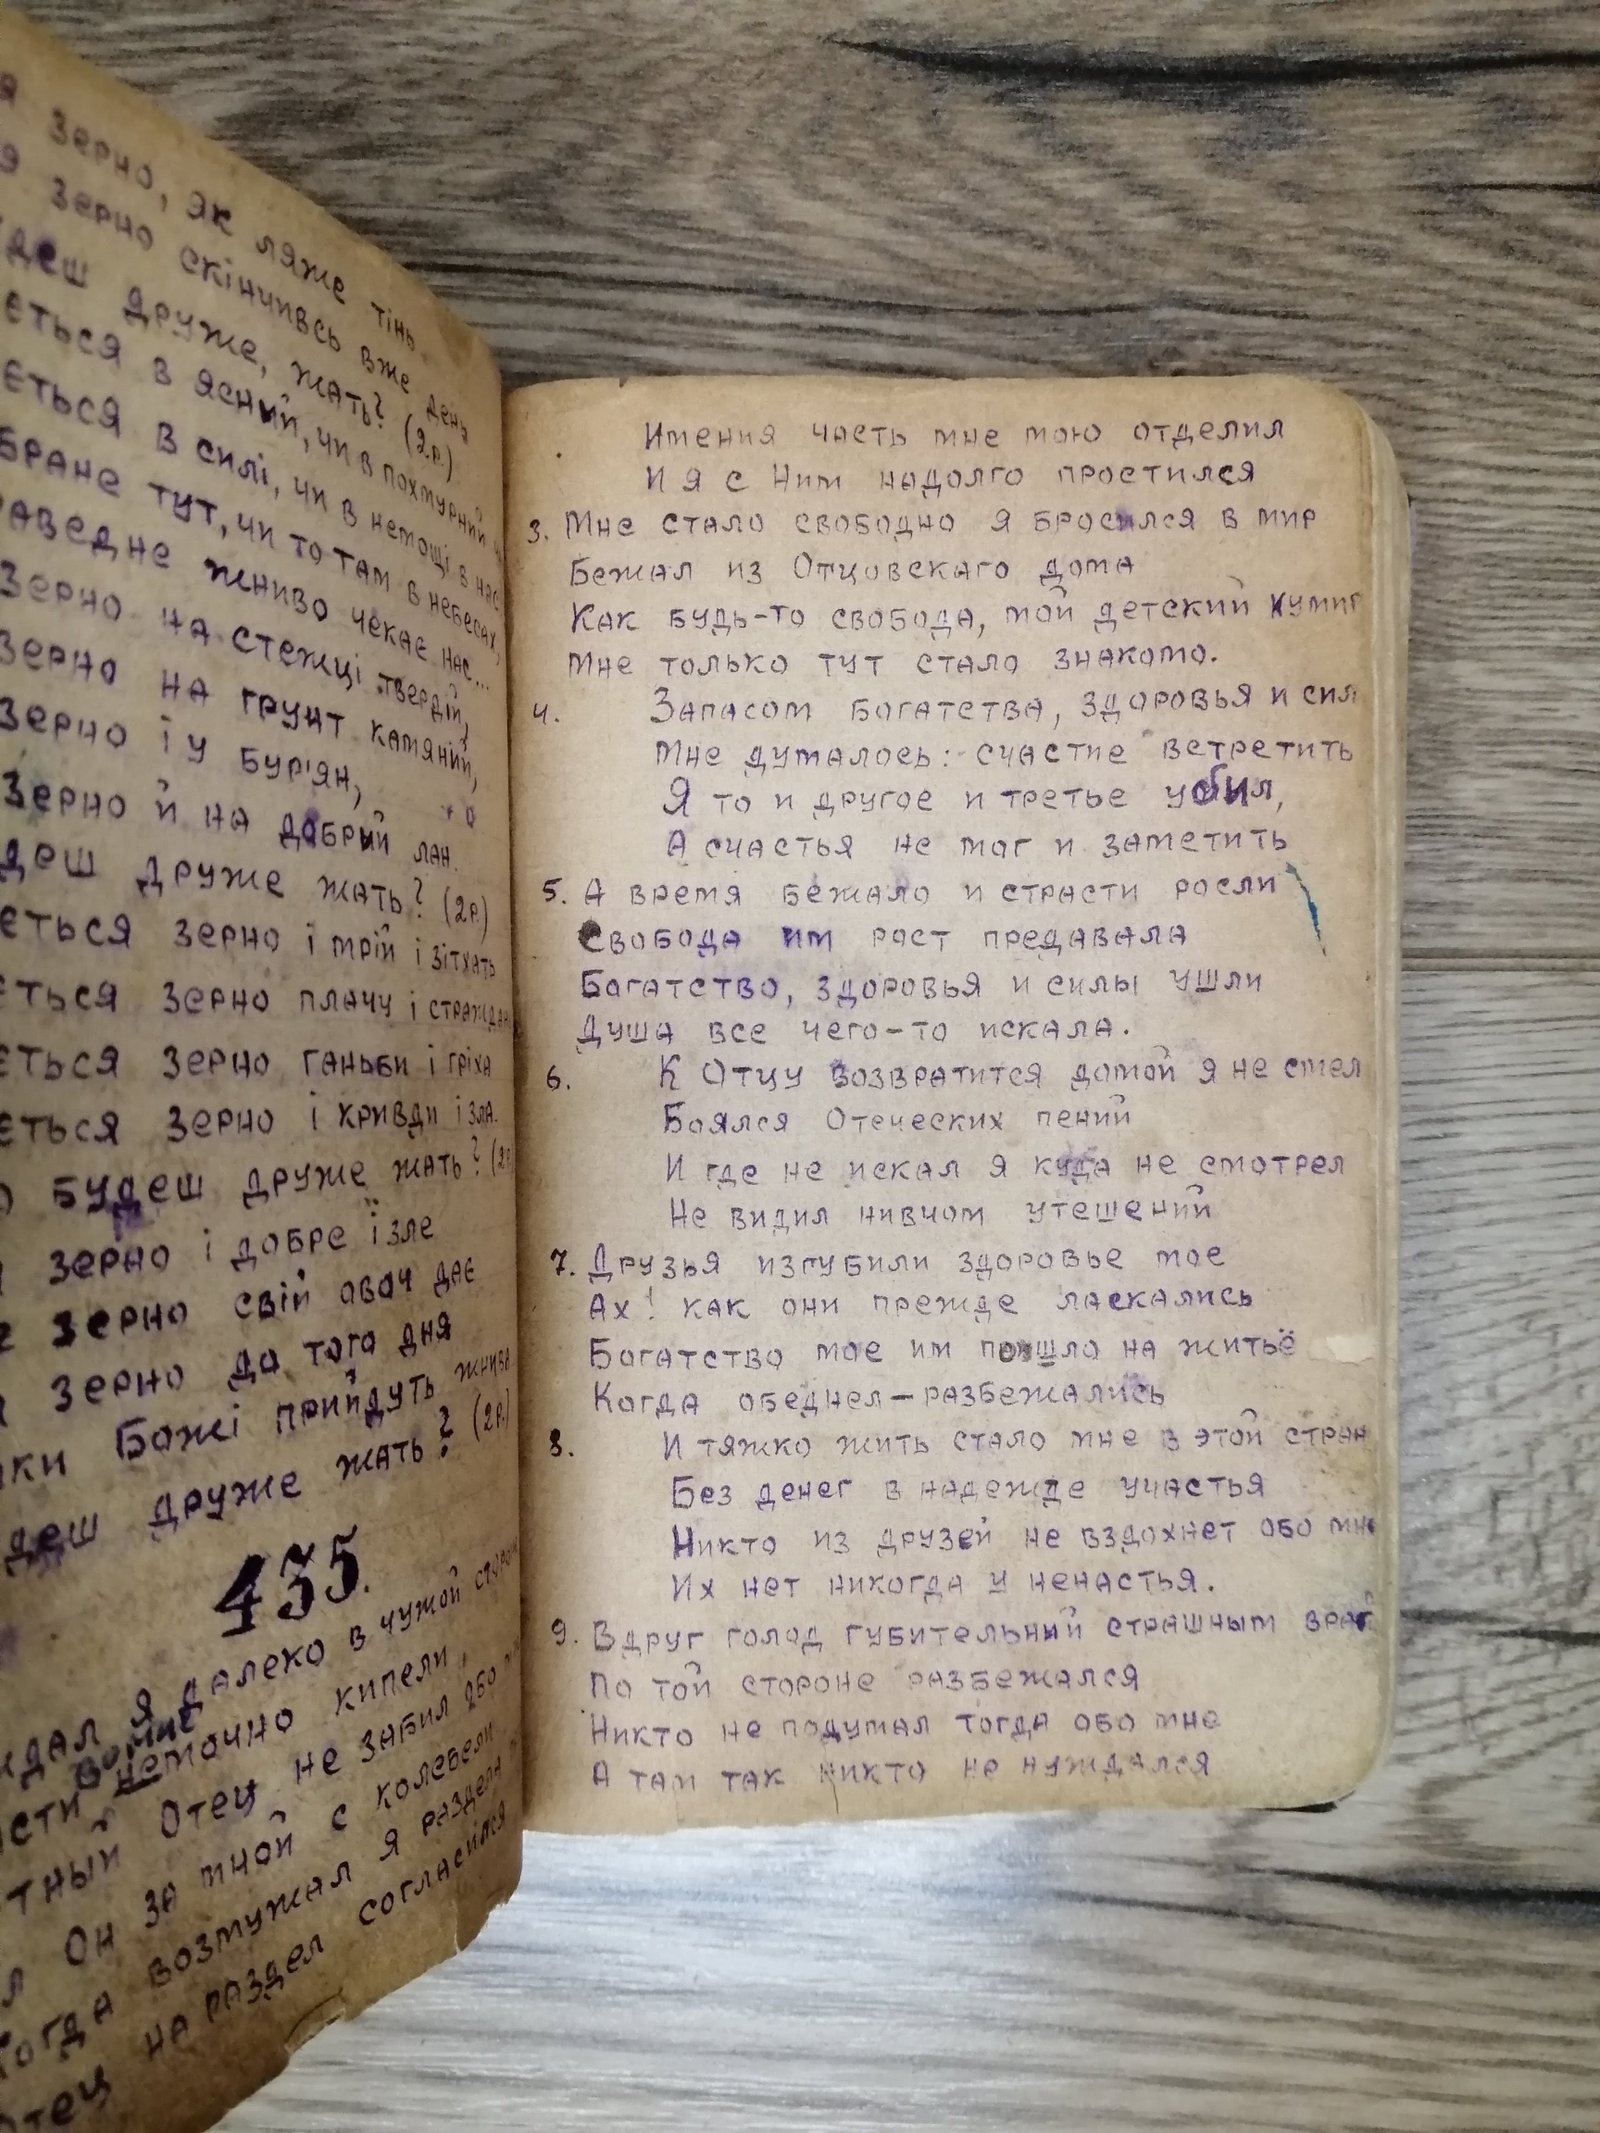 зерно, як ляже тінь
зерно скінчивсь вже день
друже, жать? (2р.)
ється в ясний, чи в похмурий
ється в силі, чи в немощі в нас
бране тут, чи то там в небесах,
праведне жниво чекає нас...
Зерно на стежці твердій,
Зерно на грунт камяній,
Зерно і у бур'ян,
Зерно й на добрий лан.
друже жать? (2р.)
ється зерно і мрій і зітхать
ється зерно плачу і страждань
ється зерно ганьби і гріха
ється зерно і кривди і зла.
будеш друже жать? (2р.)
зерно і добре і зле
зерно свій овоч дає
зерно до того дня
Божі прийдуть жнива
друже жать? (2р.)
435.
я далеко в чужой стороне
во мне
неточно кипели,
Отец не забил обо
Он за мной с колебели
Когда возмужал я раздела
Отец на раздел согласился
Имения часть мне мою отделил
И я с Ним надолго простился
3. Мне стало свободно я бросился в мир
Бежал из Отцовскаго дома
Как будь-то свобода, мой детский кумир
Мне только тут стало знакомо.
4. Запасом богатства, здоровья и сил
Мне думалось: счастие встретить
Я то и другое и третье убил,
А счастья не мог и заметить
5. А время бежало и страсти росли
Свобода им рост предавала
Богатство, здоровья и силы ушли
Душа все чего-то искала.
6. К Отцу возвратится домой я не смел
Боялся Отеческих пений
И где не искал я куда не смотрел
Не видил нивчом утешений
7. Друзья изгубили здоровье мое
Ах! как они прежде ласкались
Богатство мое им пошло на житьё
Когда обеднел-разбежались
8. И тяжко жить стало мне в этой стран
Без денег в надежде участья
Никто из друзей не вздохнет обо мне
Их нет никогда у ненастья.
9. Вдруг голод губительный страшным враг
По той стороне разбежался
Никто не подумал тогда обо мне
А там так никто не нуждался